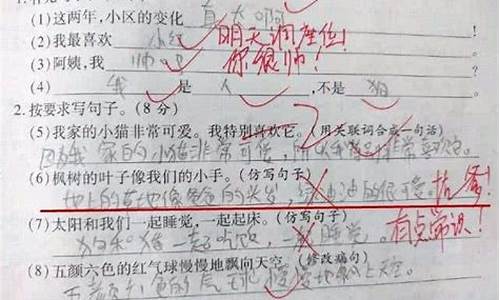 (1)这两年,小区的变化 真大啊
(2)我最喜欢 小红 明天调座位!
(3)阿姨,我 帅吧 你很帅!
(4) 我 是 人 ,不是 狗
2.按要求写句子。(8分)
(5)我家的小猫非常可爱。我特别喜欢它。(用关联词合成一句话)
因为我家的小猫非常可爱,所以我 非常喜欢它。
(6)枫树的叶子像我们的小手。(仿写句子)
地上的草地像爸爸的头发,绿油油的很 找爹!
(7)太阳和我们一起睡觉,一起起床。(仿写句子)
狗和猪一起吃饭,一起睡觉。 有点常识!
(8)五颜六色的红气球慢慢地飘向天空。(修改病句)
五颜六色的气球慢慢地飘上天空。